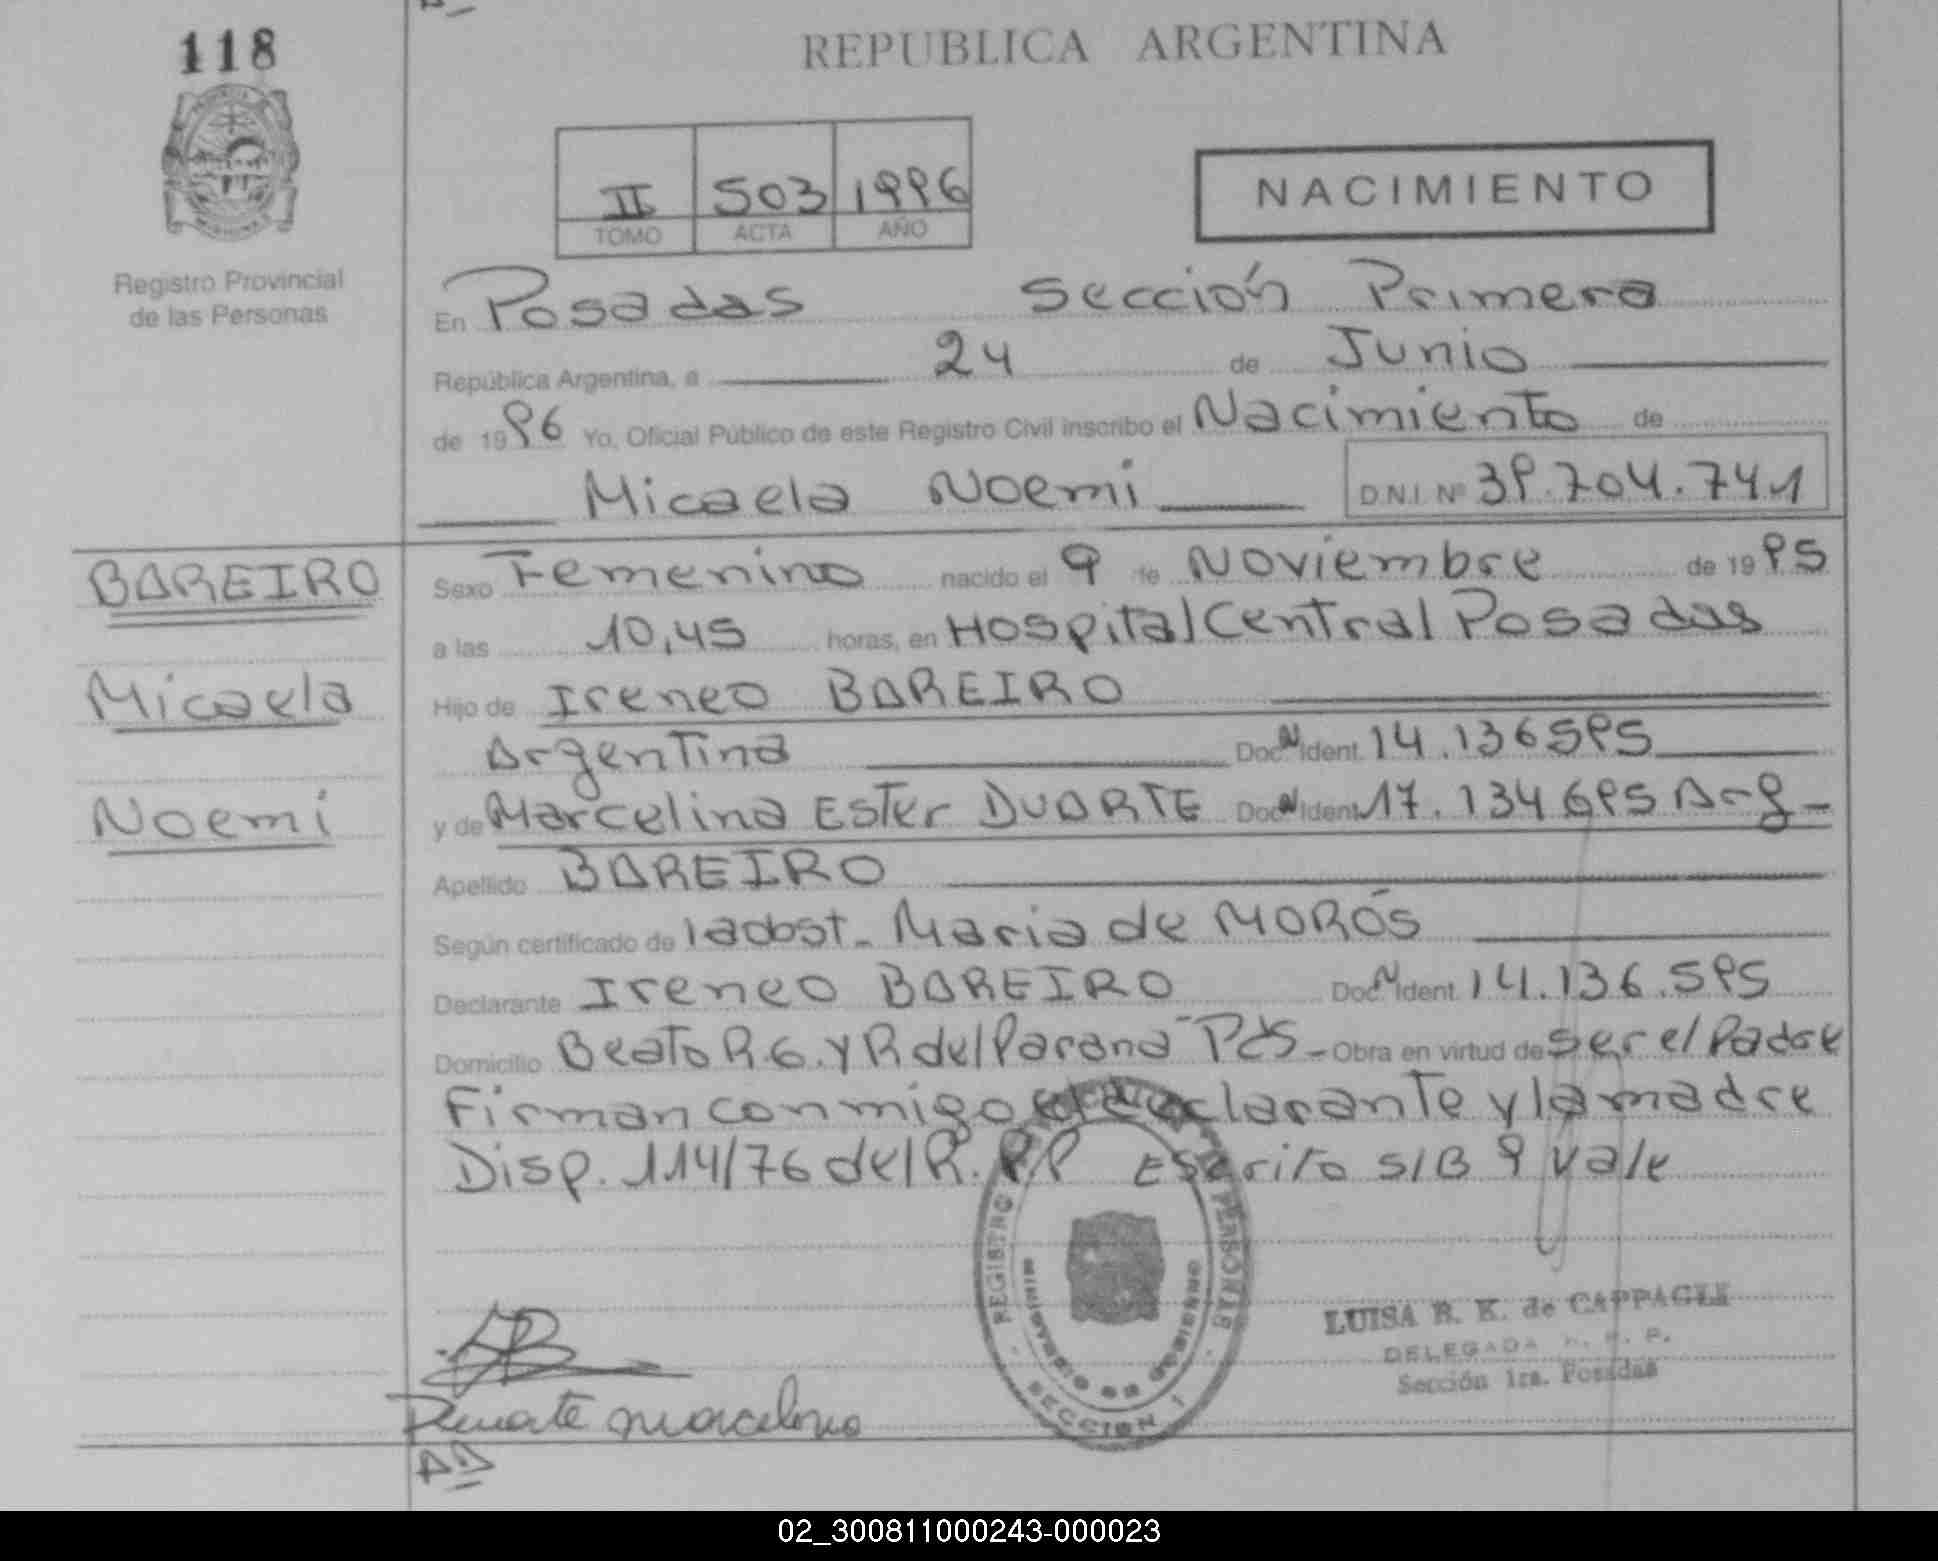 118
REPUBLICA ARGENTINA
II 503 1996
TOMO ACTA AÑO
NACIMIENTO
Registro Provincial
de las Personas
En Posadas Sección Primera
República Argentina, a 24 de Junio
de 1996 Yo, Oficial Público de este Registro Civil inscribo el Nacimiento de
Micaela Noemi D.N.I. Nº 39.704.741
BAREIRO
Micaela
Noemi
Sexo Femenino nacido el 9 de Noviembre de 1995
a las 10,45 horas, en Hospital Central Posadas
Hijo de Ireneo BAREIRO
Argentina Doc. N Ident. 14.136595
y de Marcelina Ester DUARTE Doc. N Ident. 17.134695 Arg-
Apellido BAREIRO
Según certificado de la obst. Maria de MORÓS
Declarante Ireneo BAREIRO Doc. N Ident. 14.136.595
Domicilio Beato R.G. y R del Parana PdS - Obra en virtud de ser el Padre
Firman conmigo el declarante y la madre
Disp. 114/76 del R.P.P Escrito S/B 9 Vale
REGISTRO PERSONAS
MINISTERIO DE GOBIERNO
SECCION 1
LUISA R. K. de CAPPAGLI
DELEGADA R. P. P.
Sección 1ra. Posadas
Duarte Marcelina
02_300811000243-000023